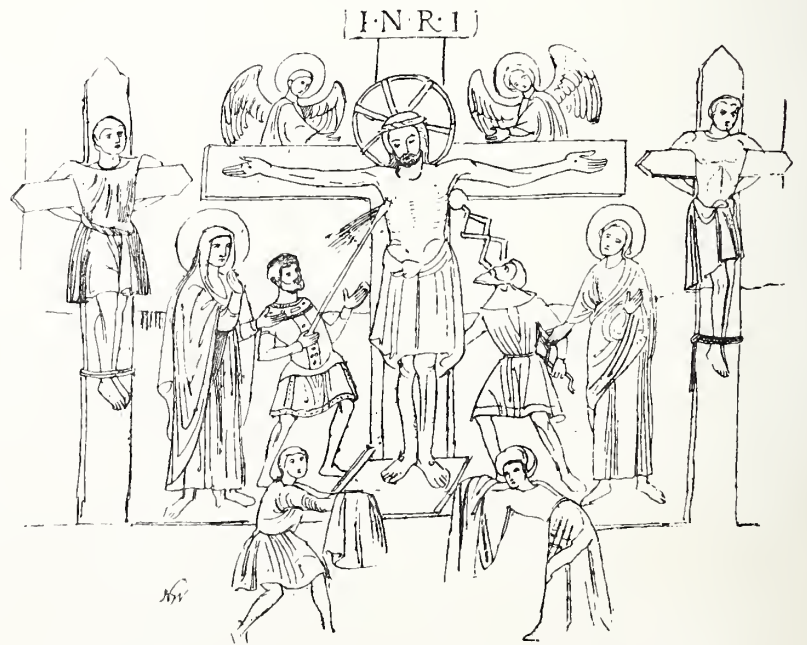 I·N·R·I